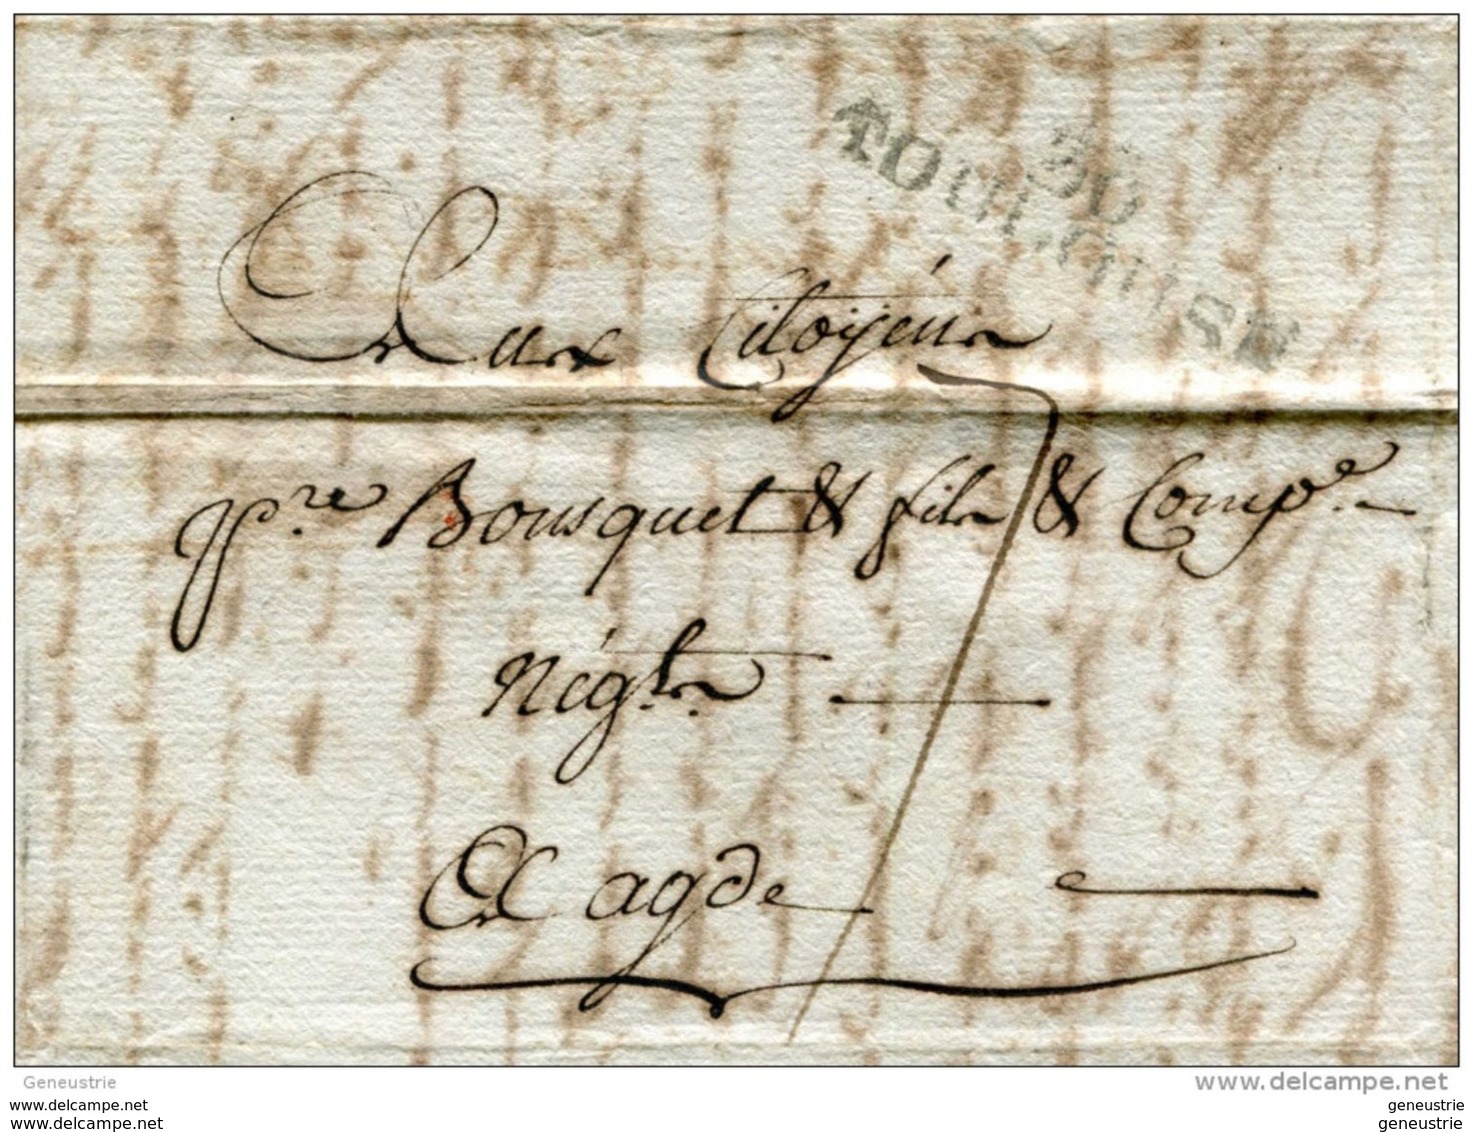 30
TOULOUSE
Aux Citoyéns
7
Pre. Bousquet & fils & Compe.
Négts.
A agde
Geneustrie
www.delcampe.net
www.delcampe.net
www.delcampe.net
geneustrie
geneustrie